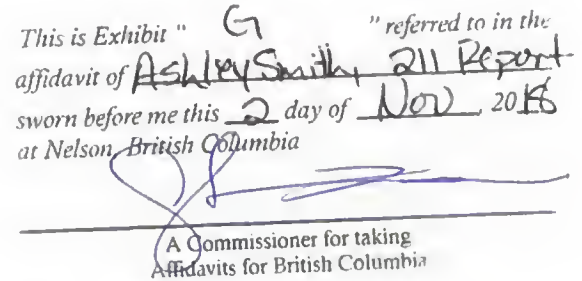 This is Exhibit " G " referred to in the
affidavit of Ashley Smith, 211 Report
sworn before me this 2 day of Nov 2018
at Nelson, British Columbia
A Commissioner for taking
Affidavits for British Columbia